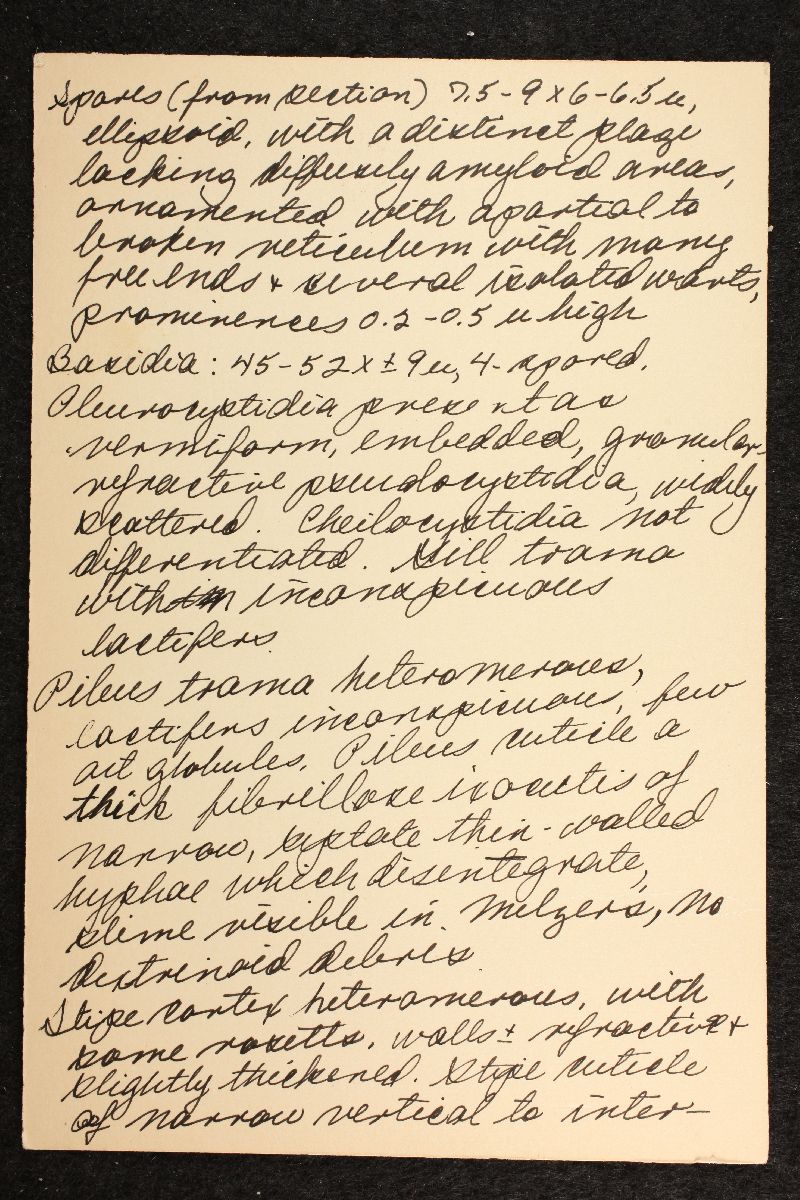 Spores (from section) 7.5-9 x 6-6.5 u,
ellipsoid, with a distinct plage
lacking diffusely amyloid areas,
ornamented with a partial to
broken reticulum with many
free ends + several isolated warts,
prominences 0.2-0.5 u high
Basidia: 45-52 x ± 9 u, 4-spored.
Pleurocystidia present as
vermiform, embedded, granular-
refractive pseudocystidia, widely
scattered. Cheilocystidia not
differentiated. Gill trama
with inconspicuous
lactifers.
Pileus trama heteromerous,
lactifers inconspicuous, few
oil globules. Pileus cuticle a
thick fibrillose ixocutis of
narrow, septate thin-walled
hyphae which disentegrate,
slime visible in Melzer's, no
dextrinoid debris
Stipe cortex heteromerous, with
some rosetts, walls ± refractive +
slightly thickened. Stipe cuticle
of narrow vertical to inter-